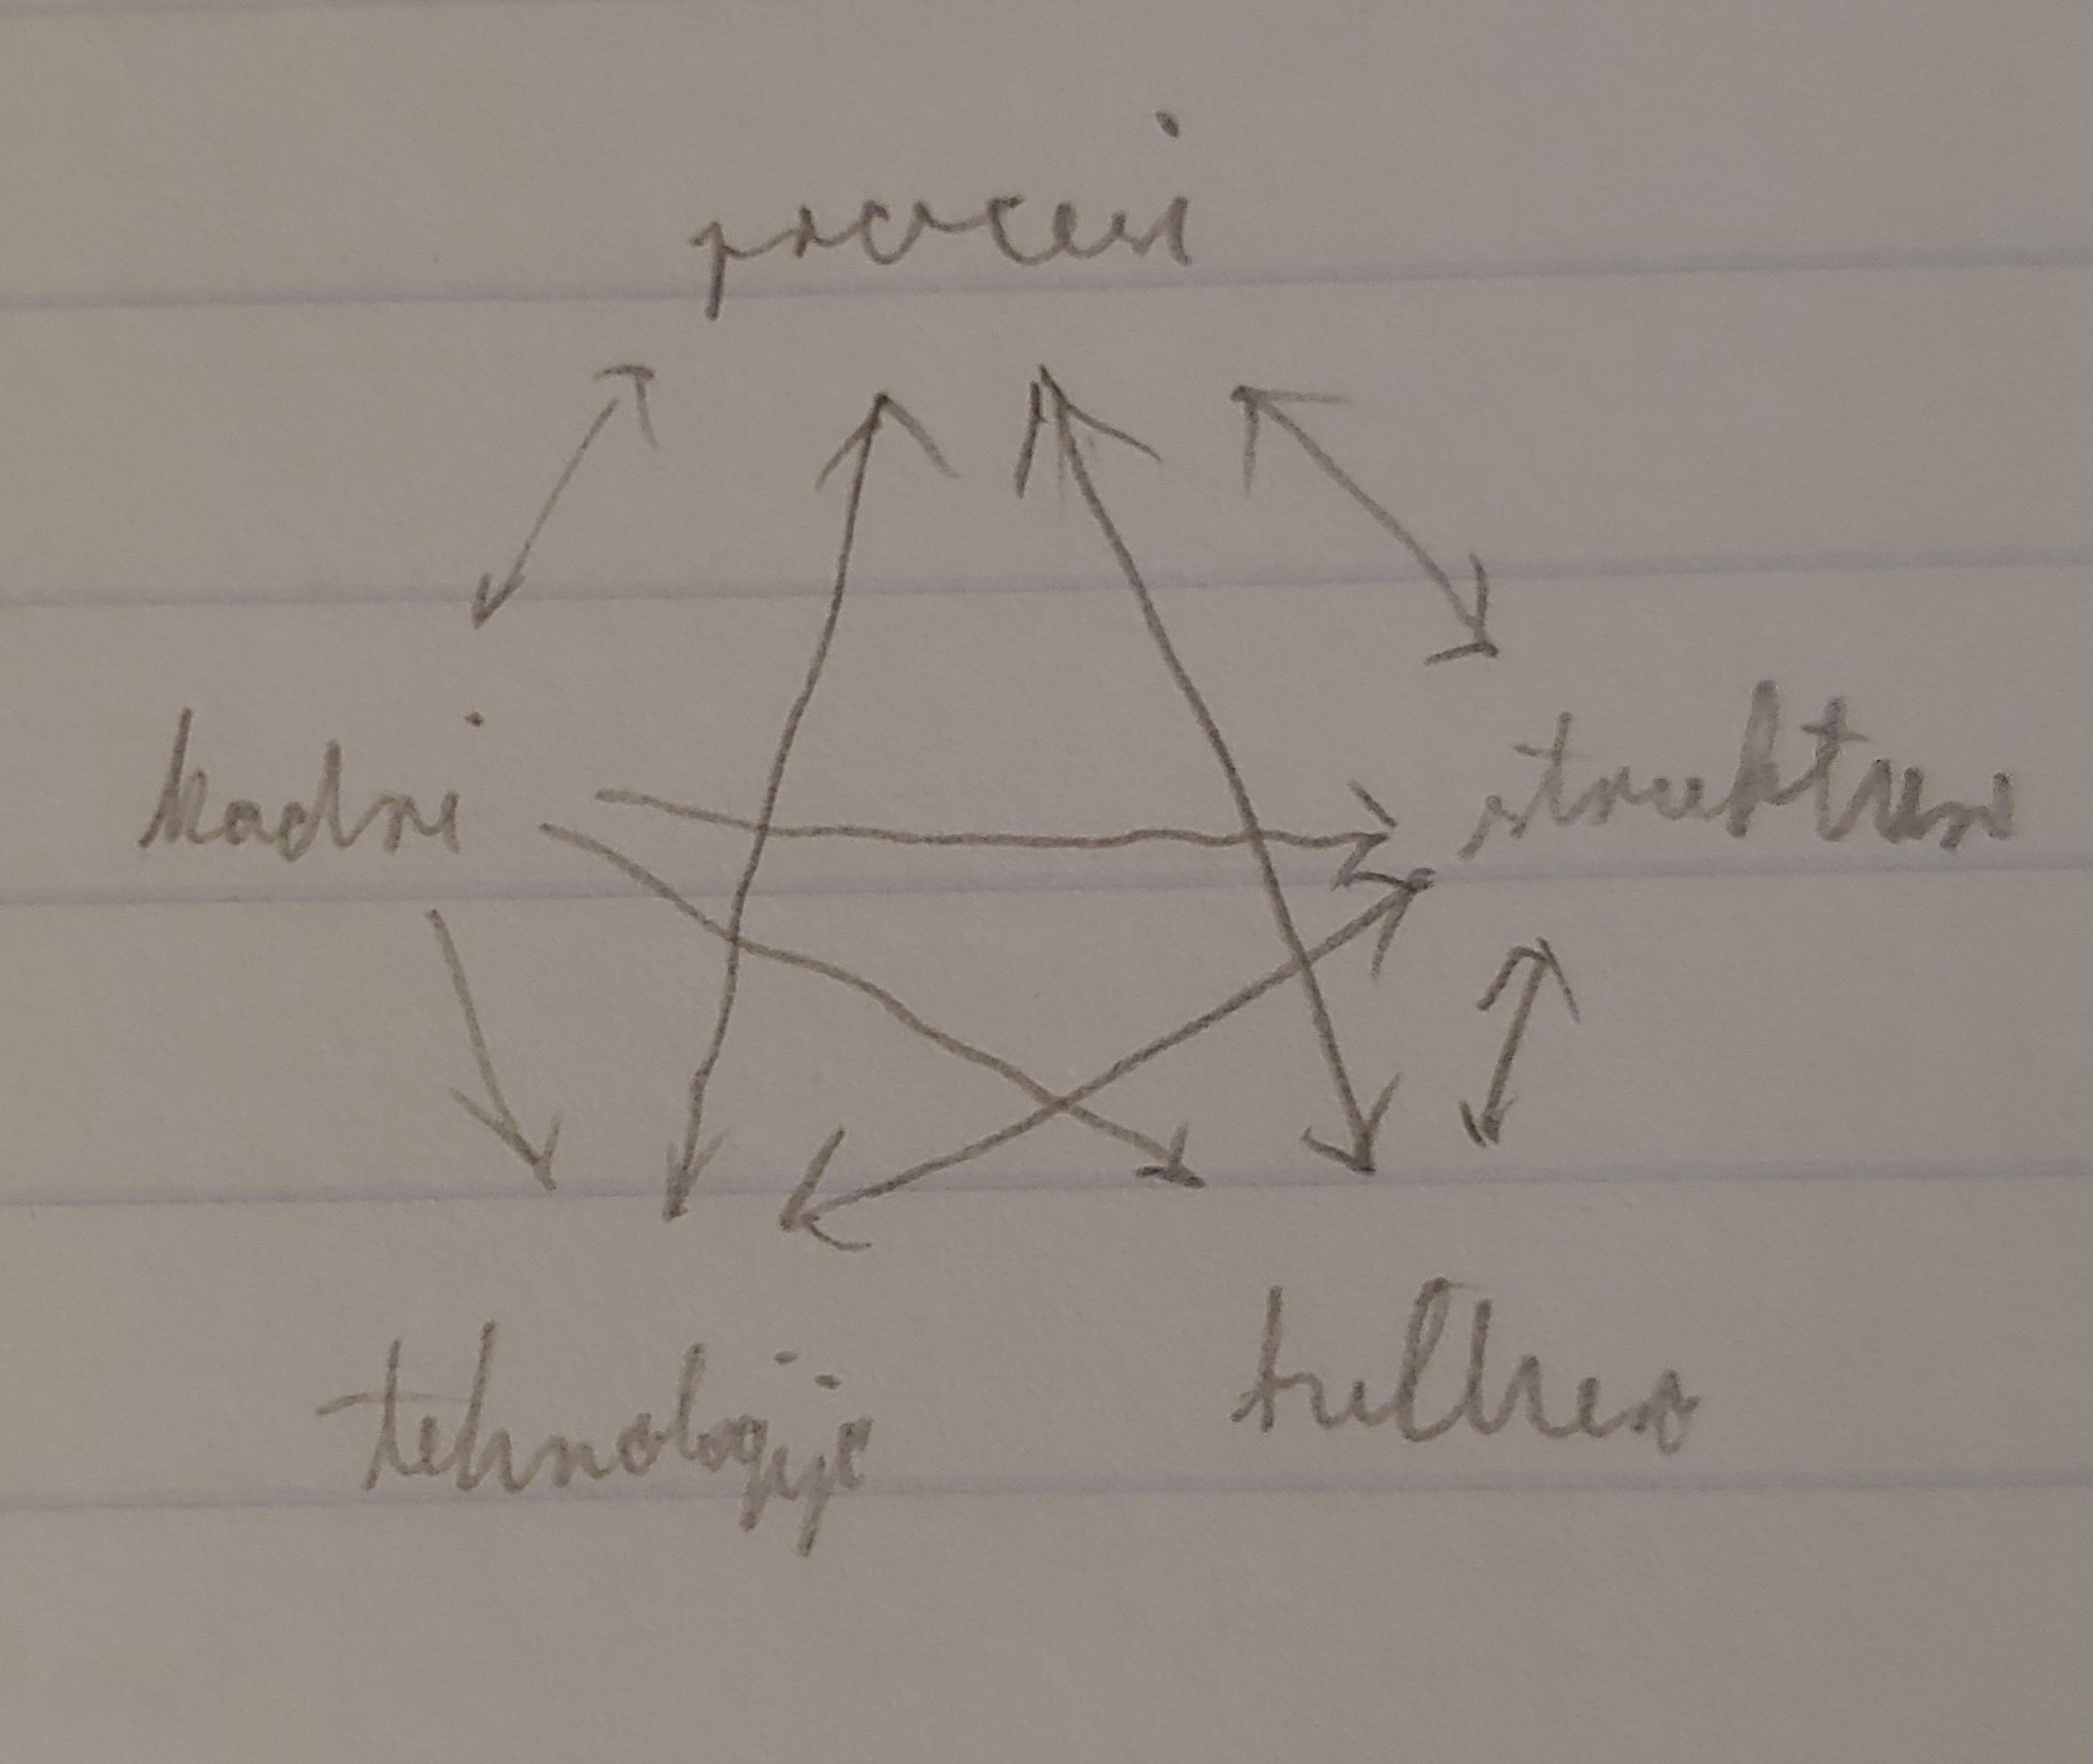 procesi
kadri
struktura
tehnologije
kultura